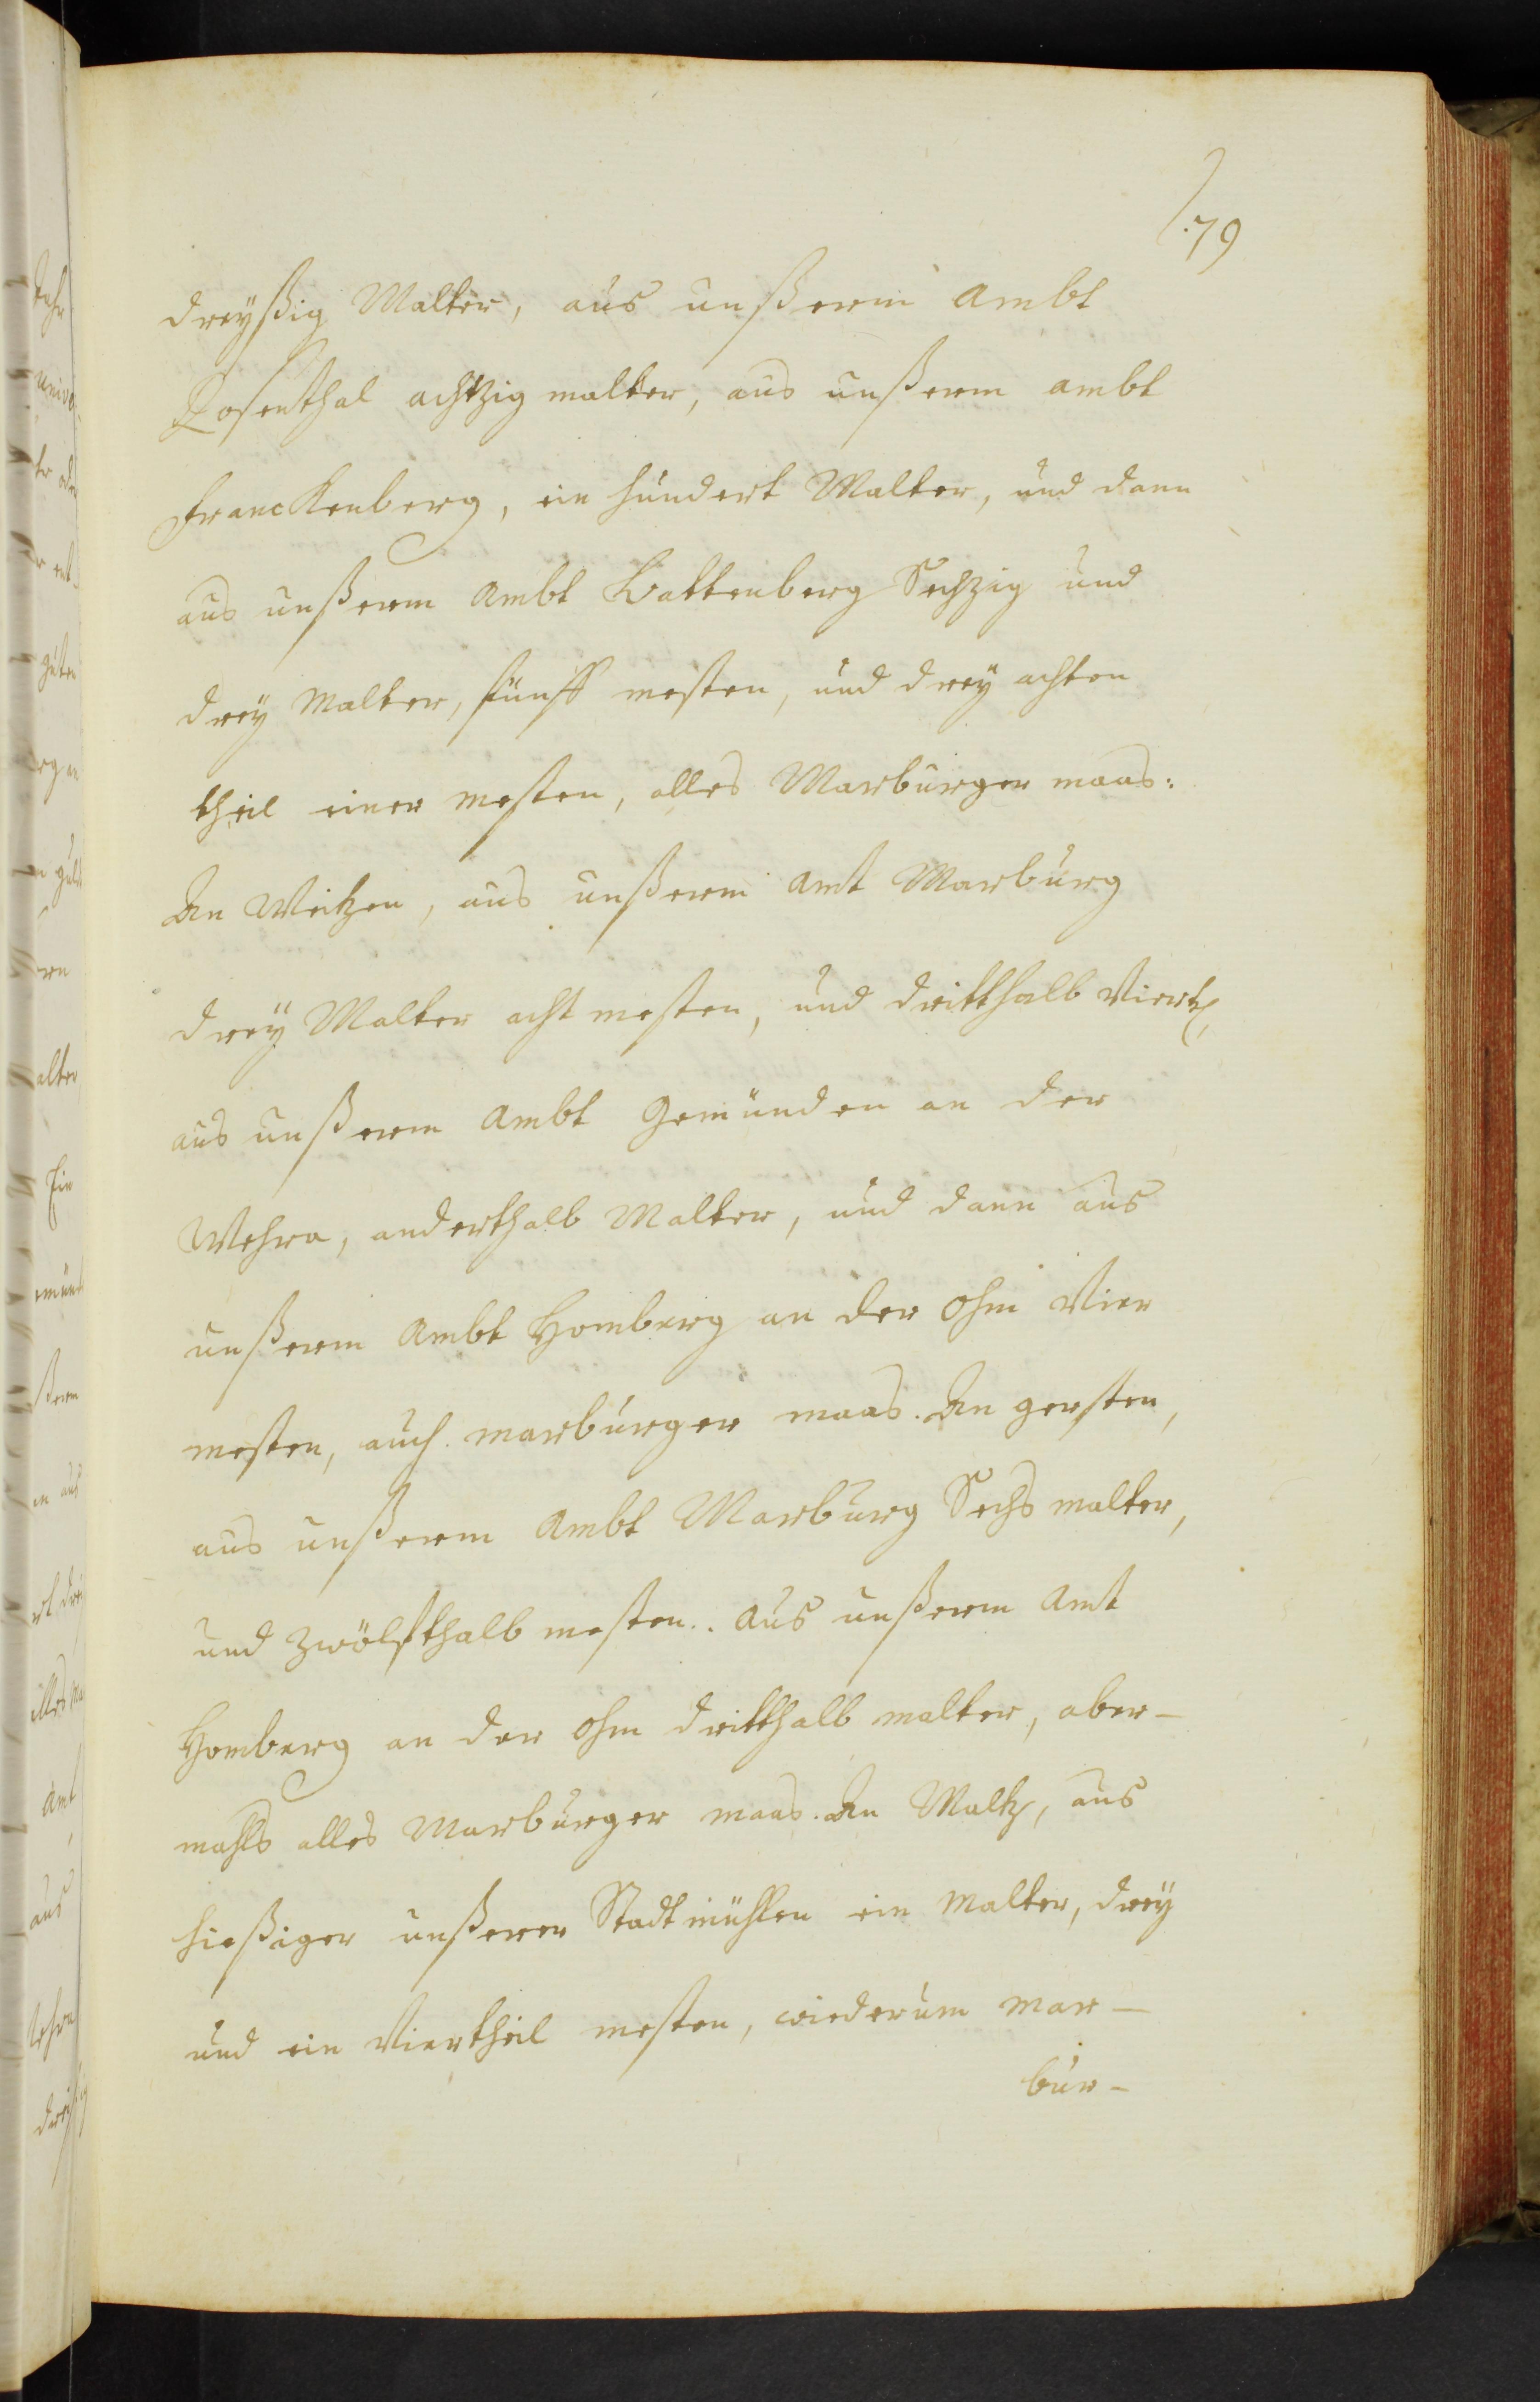 79
dreyßig Malter, aus unßerm Ambt
Rosenthal achtzig malter, aus unßerm ambt
Franckenberg, ein hundert Malter, und dann
aus unßerm Ambt Battenberg Sechzig und
drey Malter, fünff mesten, und drey achten
theil einer mesten, alles Marburger maas:
An Weitzen, aus unßerm Amt Marburg
drey Malter acht mesten, und dritthalb Viertel,
aus unßerm Ambt Gemünden an der
Wehra, anderthalb Malter, und dann aus
unßerm Ambt Homberg an der Ohm Vier
mesten, auch marburger maas. An gersten,
aus unßerm Ambt Marburg Sechs malter,
und zwölffthalb mesten.. Aus unßerm Amt
Homberg an der Ohm dritthalb malter, aber-
mahls alles Marburger maas. An Maltz, aus
hießiger unßerer Stadtmühlen ein Malter, drey
und ein Viertheil mesten, wiederum Mar-
bur-